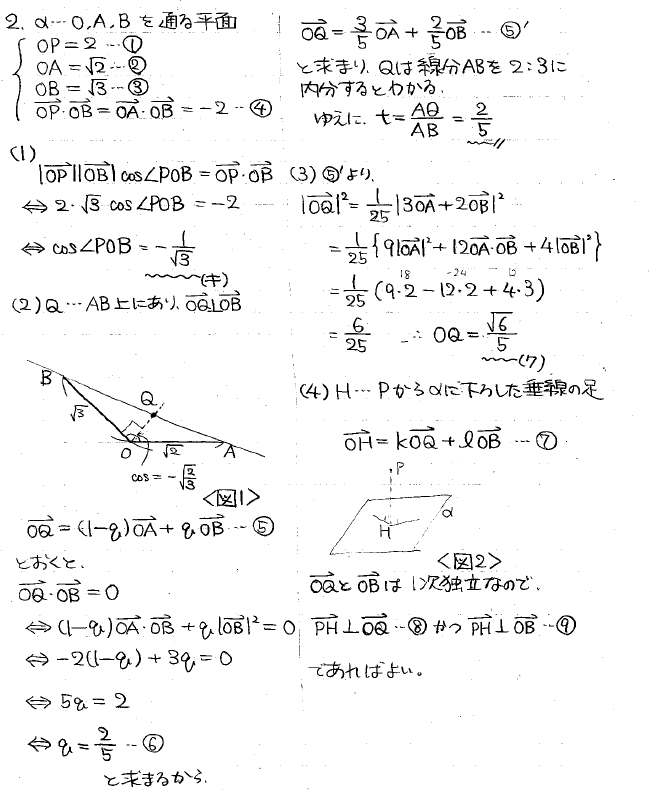 2. α…O, A, B を通る平面
OP = 2 …①
OA = √2 …②
OB = √3 …③
OP・OB = OA・OB = −2 …④
(1)
|OP||OB| cos∠POB = OP・OB
⇔ 2・√3 cos∠POB = −2
⇔ cos∠POB = −1/√3
(キ)
(2) Q … AB上にあり、OQ⊥OB
B
√3
Q
O
√2
A
cos = −√2/√3
<図1>
OQ = (1−q)OA + qOB …⑤
とおくと、
OQ・OB = 0
⇔ (1−q)OA・OB + q|OB|² = 0
⇔ −2(1−q) + 3q = 0
⇔ 5q = 2
⇔ q = 2/5 …⑥
と求まるから、
OQ = 3/5 OA + 2/5 OB …⑤'
と求まり、Qは線分ABを2:3に
内分するとわかる。
ゆえに、t = AQ/AB = 2/5
(3) ⑤'より、
|OQ|² = 1/25 |3OA + 2OB|²
= 1/25 {9|OA|² + 12OA・OB + 4|OB|²}
18 −24 12
= 1/25 (9・2 − 12・2 + 4・3)
= 6/25 ∴ OQ = √6/5
(ク)
(4) H … Pからαに下ろした垂線の足
OH = kOQ + lOB …⑦
P
H
α
<図2>
OQとOBは1次独立なので、
PH⊥OQ …⑧ かつ PH⊥OB …⑨
であればよい。